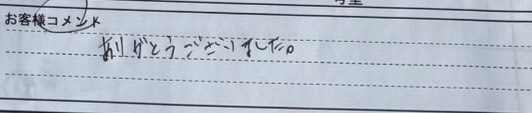 お客様コメント
ありがとうございました。